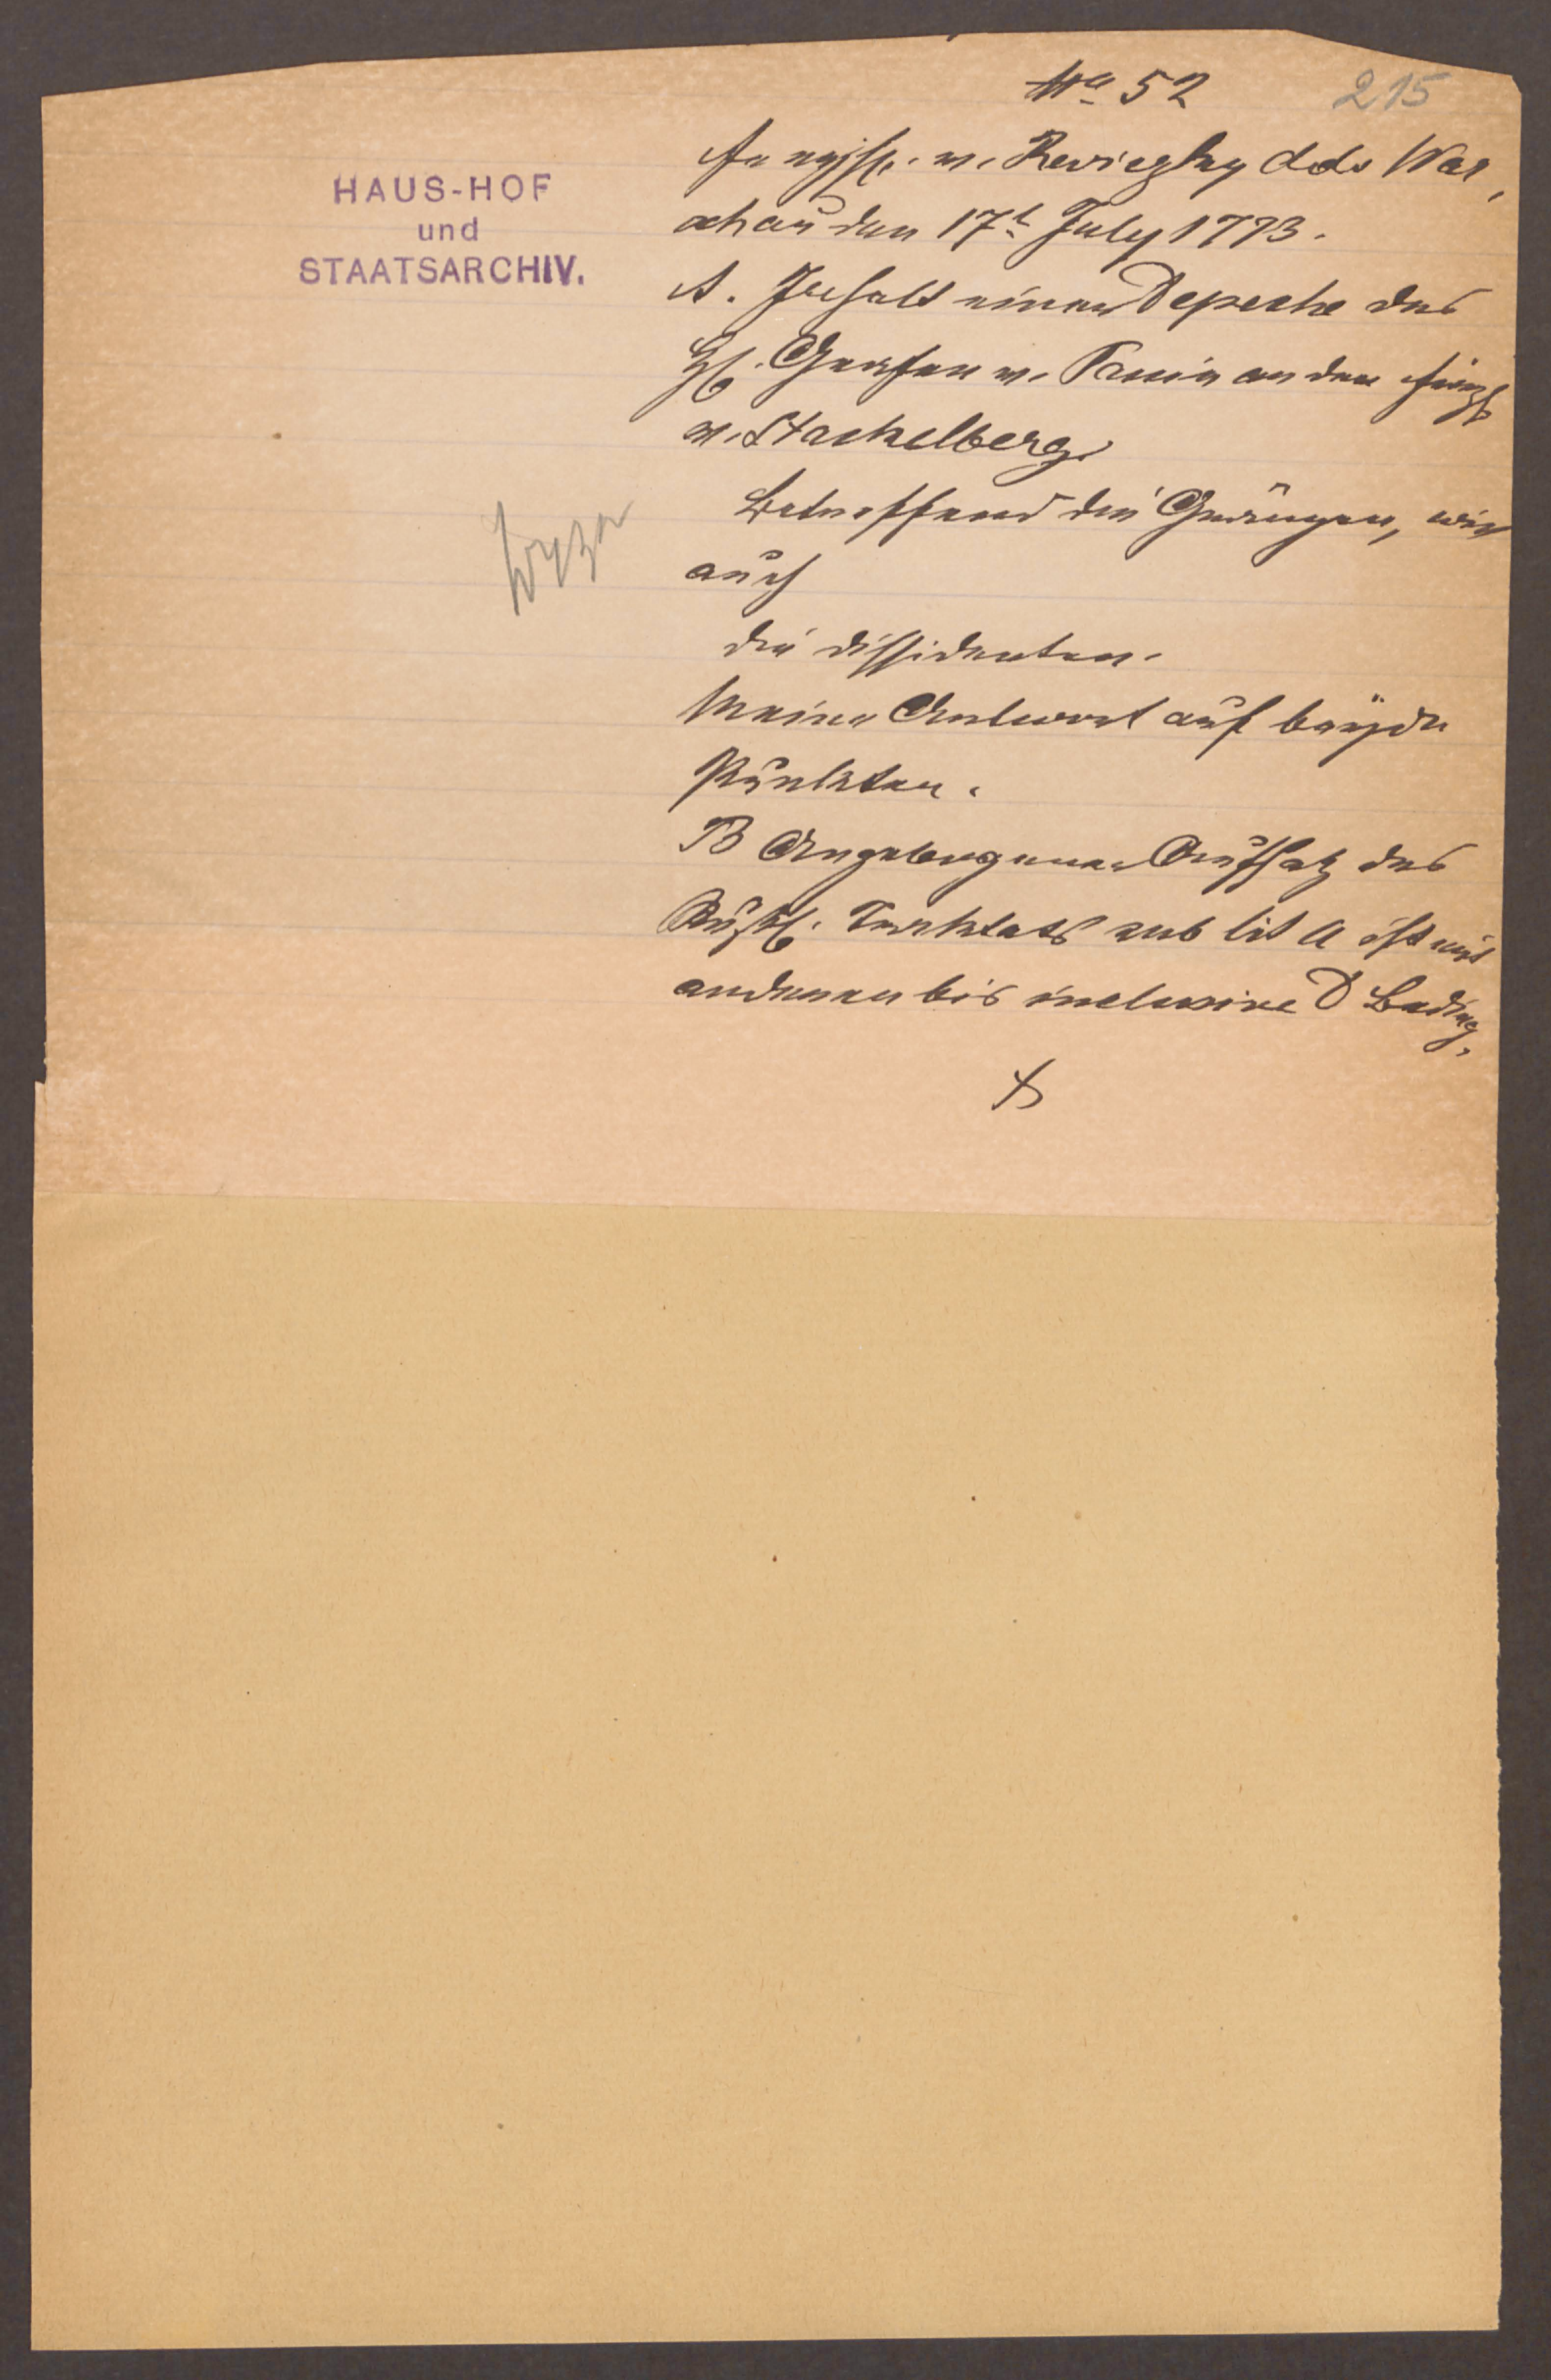 No 52
215
HAUS-HOF
und
STAATSARCHIV.
v. Reviczky ddo War,
schau den 17t July 1773.
A. Inhalt einer Depeche des
H. Grafen v. Panin an den
v. Stackelberg.
Betreffend die Gränzen, wie
auch
die dissidenten.
Meine Antwort auf beÿde
Punkten.
B Angebogener Aufsatz des
Traktats sub lit A ist mit
anderen bis inclusive D